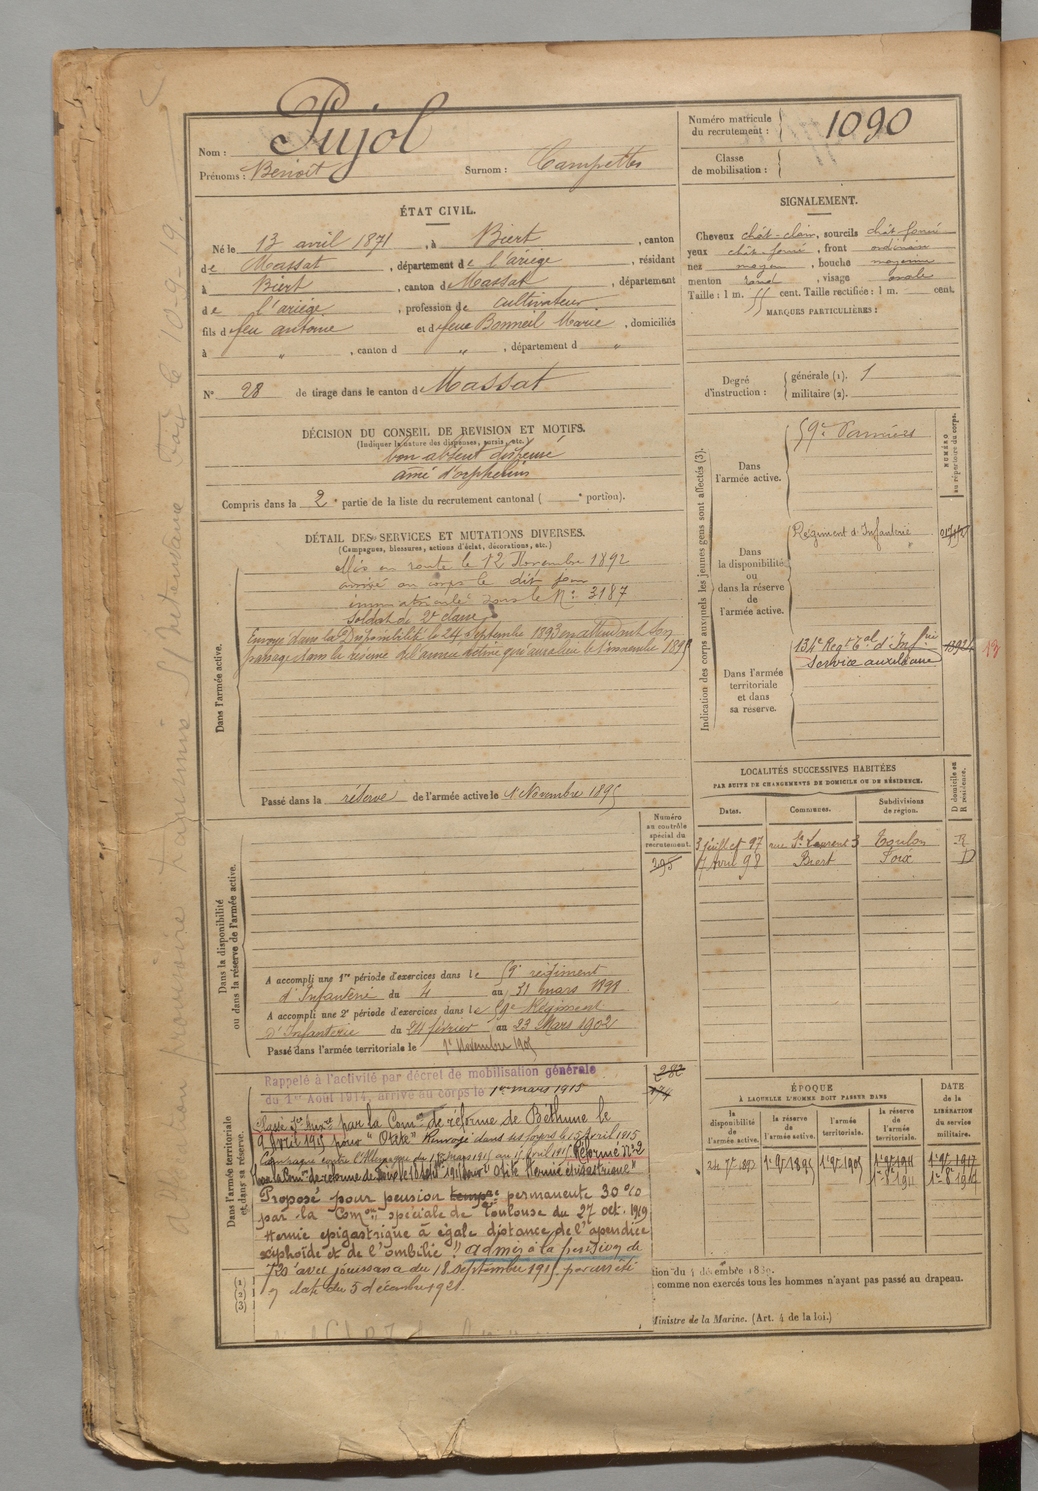 Nom : Pujol
Prénoms : Benoit Surnom : Campettes
Numéro matricule
du recrutement : 1090
Classe
de mobilisation :
ÉTAT CIVIL.
Né le 13 avril 1871, à Biert, canton
de Massat, département de l'ariège, résidant
à Biert, canton de Massat, département
de l'ariège, profession de cultivateur
fils de feu antoine et de feue Bonneil Marie, domiciliés
à „, canton d „, département d „
N° 28 de tirage dans le canton de Massat
SIGNALEMENT.
Cheveux chât-clair, sourcils chât foncé
yeux chât-foncé, front ordinaire
nez moyen, bouche moyenne
menton rond, visage ovale
Taille : 1 m. 55 cent. Taille rectifiée : 1 m. cent.
MARQUES PARTICULIÈRES :
Degré
d'instruction :
générale (1). 1
militaire (2).
DÉCISION DU CONSEIL DE REVISION ET MOTIFS.
(Indiquer la nature des dispenses, sursis, etc.)
bon absent dispensé
ainé d'orphelins
Compris dans la 2e partie de la liste du recrutement cantonal ( e portion).
DÉTAIL DES SERVICES ET MUTATIONS DIVERSES.
(Campagnes, blessures, actions d'éclat, décorations, etc.)
Dans l'armée active.
Mis en route le 12 Novembre 1892
arrivé au corps le dit jour
immatriculé sous le N° 3187
Soldat de 2e classe
Envoyé dans la Disponibilité le 24 septembre 1893 en attendant son
passage dans la réserve de l'armée active qui aura lieu le 1er novembre 1895
Passé dans la réserve de l'armée active le 1 Novembre 1895
Indication des corps auxquels les jeunes gens sont affectés (3).
NUMÉRO
au répertoire du corps.
Dans
l'armée active.
59e Pamiers
Dans
la disponibilité
ou
dans la réserve
de
l'armée active.
Régiment d'Infanterie
Dans l'armée
territoriale
et dans
sa réserve.
134e Regt Tal d'Infrie
Service auxiliaire
13
LOCALITÉS SUCCESSIVES HABITÉES
PAR SUITE DE CHANGEMENTS DE DOMICILE OU DE RÉSIDENCE.
Dates. Communes. Subdivisions de région. D domicile ou R résidence.
3 juillet 97 rue St Laurent 3 Toulon R
7 Avril 98 Biert Foix D
Dans la disponibilité
ou dans la réserve de l'armée active.
Numéro
au contrôle
spécial du
recrutement.
295
A accompli une 1re période d'exercices dans le 59e régiment
d'Infanterie du 4 au 31 mars 1898
A accompli une 2e période d'exercices dans le 59e Régiment
d'Infanterie du 24 février au 23 Mars 1902
Passé dans l'armée territoriale le 1er Novembre 1905
Dans l'armée territoriale
et dans sa réserve.
282
Rappelé à l'activité par décret de mobilisation générale
du 1er Août 1914, arrivé au corps le 1er mars 1915
par la Comon de réforme de Béthune le
9 Avril 1915 pour "Otite" Renvoyé dans ses foyers le 15 Avril 1915
Campagne contre l'Allemagne du 1er mars 1915 au 15 avril 1915. Réformé N°2
"Otite Hernie épigastrique"
Proposé pour pension tempre permanente 30%
par la Comon spéciale de Toulouse du 27 oct. 1919
Hernie epigastrique à égale distance de l'apendice
xiphoïde et de l'ombilic" admis à la pension de
720f avec jouissance du 18 septembre 1919 par arrêté
date du 5 décembre 1921.
(1)
(2)
(3)
ÉPOQUE
À LAQUELLE L'HOMME DOIT PASSER DANS
la disponibilité de l'armée active. la réserve de l'armée active. l'armée territoriale. la réserve de l'armée territoriale.
DATE
de la
LIBÉRATION
du service
militaire.
24 7bre 1893 1er 9bre 1895 1er 9bre 1905 1er 9bre 1911 1er 9bre 1917
1er 8bre 1911
tion du 4 décembre 1889.
comme non exercés tous les hommes n'ayant pas passé au drapeau.
Ministre de la Marine. (Art. 4 de la loi.)